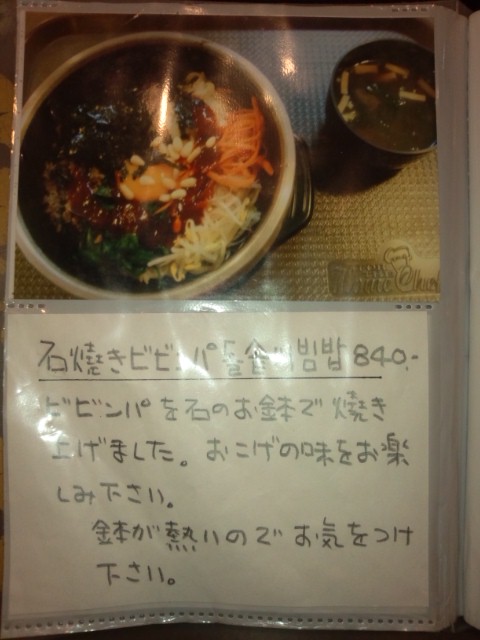 石焼きビビンパ 돌솥비빔밥 840.-
ビビンパを石のお鉢で焼き
上げました。おこげの味をお楽
しみ下さい。
鉢が熱いのでお気をつけ
下さい。